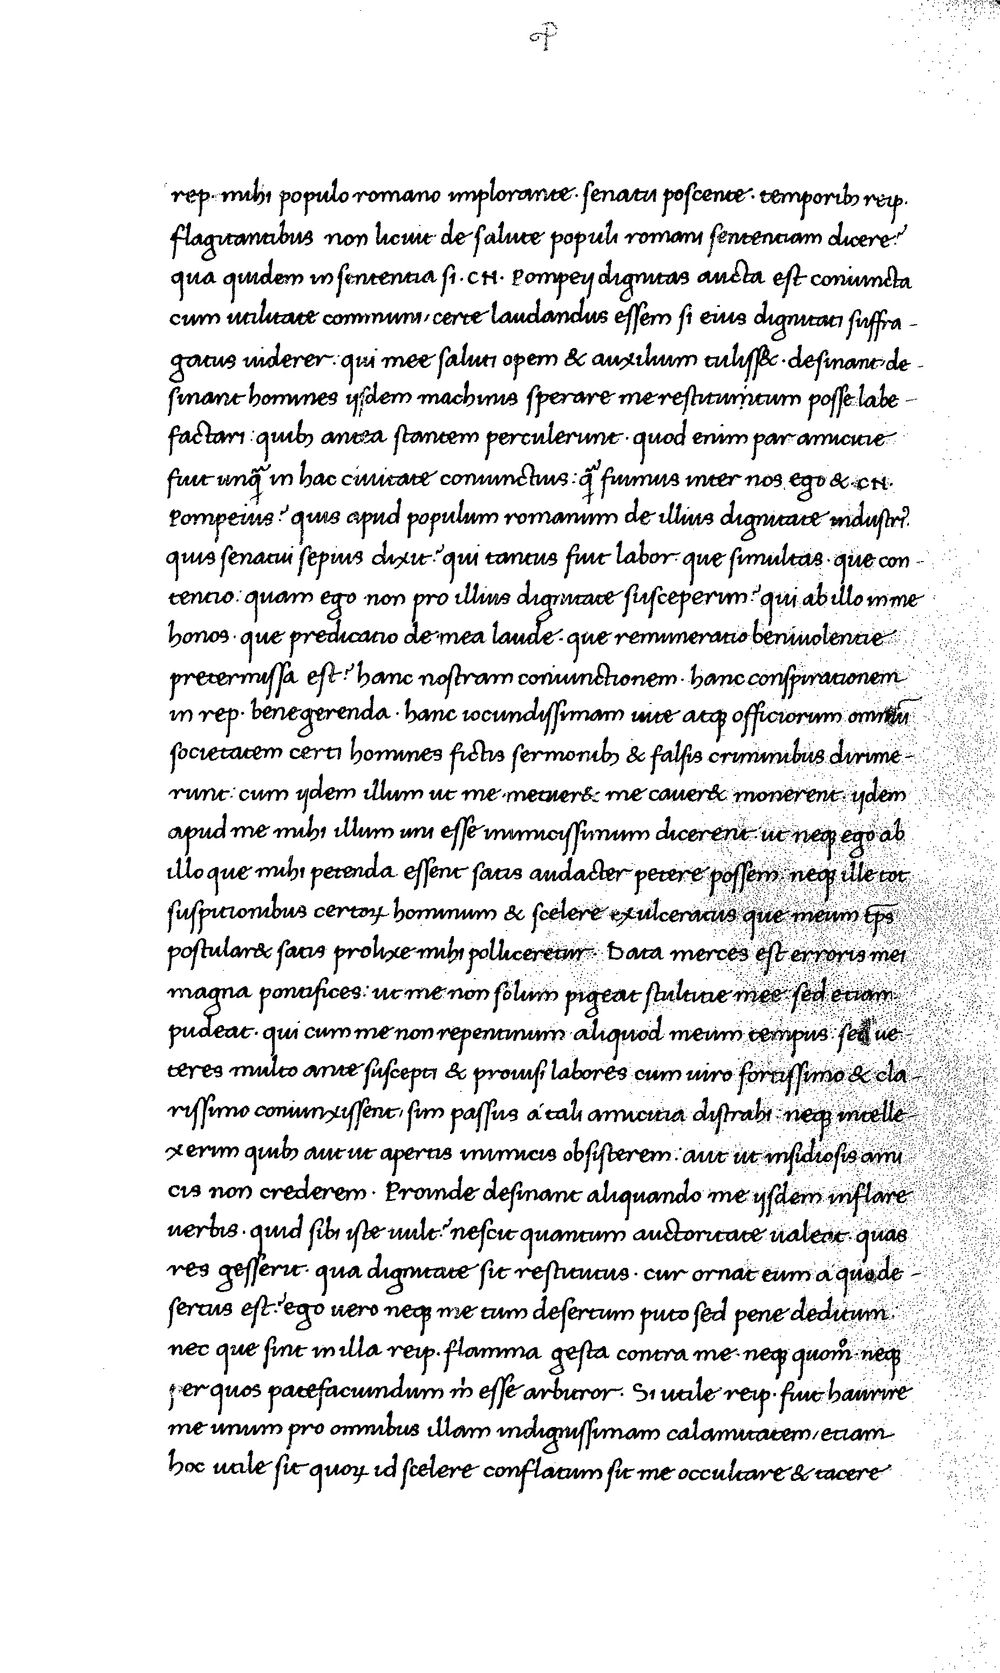 rep. mihi populo romano implorante · senatu poscente · temporibꝫ reip.
flagitantibus non licuit de salute populi romani sententiam dicere?
qua quidem in sententia si · CN · Pompeij dignitas aucta est coniuncta
cum utilitate communi, certe laudandus essem si eius dignitati suffra-
gatus uiderer : qui mee saluti opem & auxilium tuliss& · desinant de-
sinant homines ijsdem machinis sperare me restitutum posse labe-
factari : quibꝫ antea stantem perculerunt · quod enim par amicitie
fuit unq̃ in hac ciuitate coniunctius : q̃ fuimus inter nos ego & · CN ·
Pompeius? quis apud populum romanum de illius dignitate industri⁹.
quis senatui sepius dixit? qui tantus fuit labor · que simultas · que con-
tentio : quam ego non pro illius dignitate susceperim? qui ab illo in me
honos · que predicatio de mea laude · que remuneratio beniuolentie
pretermissa est? hanc nostram coniunctionem · hanc conspirationem
in rep. bene gerenda · hanc iocundissimam uite atqꝫ officiorum omniū
societatem certi homines fictis sermonibꝫ & falsis criminibus dirime-
runt : cum ijdem illum ut me metuer& me cauer& monerent · ijdem
apud me mihi illum uni esse inimicissimum dicerent · ut neqꝫ ego ab
illo que mihi petenda essent satis audacter petere possem · neqꝫ ille tot
suspitionibus certoꝝ hominum & scelere exulceratus que meum tp̄s
postular& satis prolixe mihi polliceretur · Data merces est erroris mei
magna pontifices : ut me non solum pigeat stultitie mee sed etiam
pudeat · qui cum me non repentinum aliquod meum tempus · sed ue-
teres multo ante suscepti & prouisi labores cum uiro fortissimo & cla-
rissimo coniunxissent, sim passus a tali amicitia distrahi neqꝫ intelle-
xerim quibꝫ aut ut apertis inimicis obsisterem : aut ut insidiosis ami
cis non crederem · Proinde desinant aliquando me ijsdem inflare
uerbis · quid sibi iste uult? nescit quantum auctoritate ualeat · quas
res gesserit · qua dignitate sit restitutus · cur ornat eum a quo de-
sertus est? ego uero neqꝫ me tum desertum puto sed pene deditum ·
nec que sint in illa reip. flamma gesta contra me neqꝫ quom̊ neqꝫ
per quos patefaciundum m̄ esse arbitror · Si utile reip. fuit haurire
me unum pro omnibus illam indignissimam calamitatem, etiam
hoc utile sit quoꝝ id scelere conflatum sit me occultare & tacere